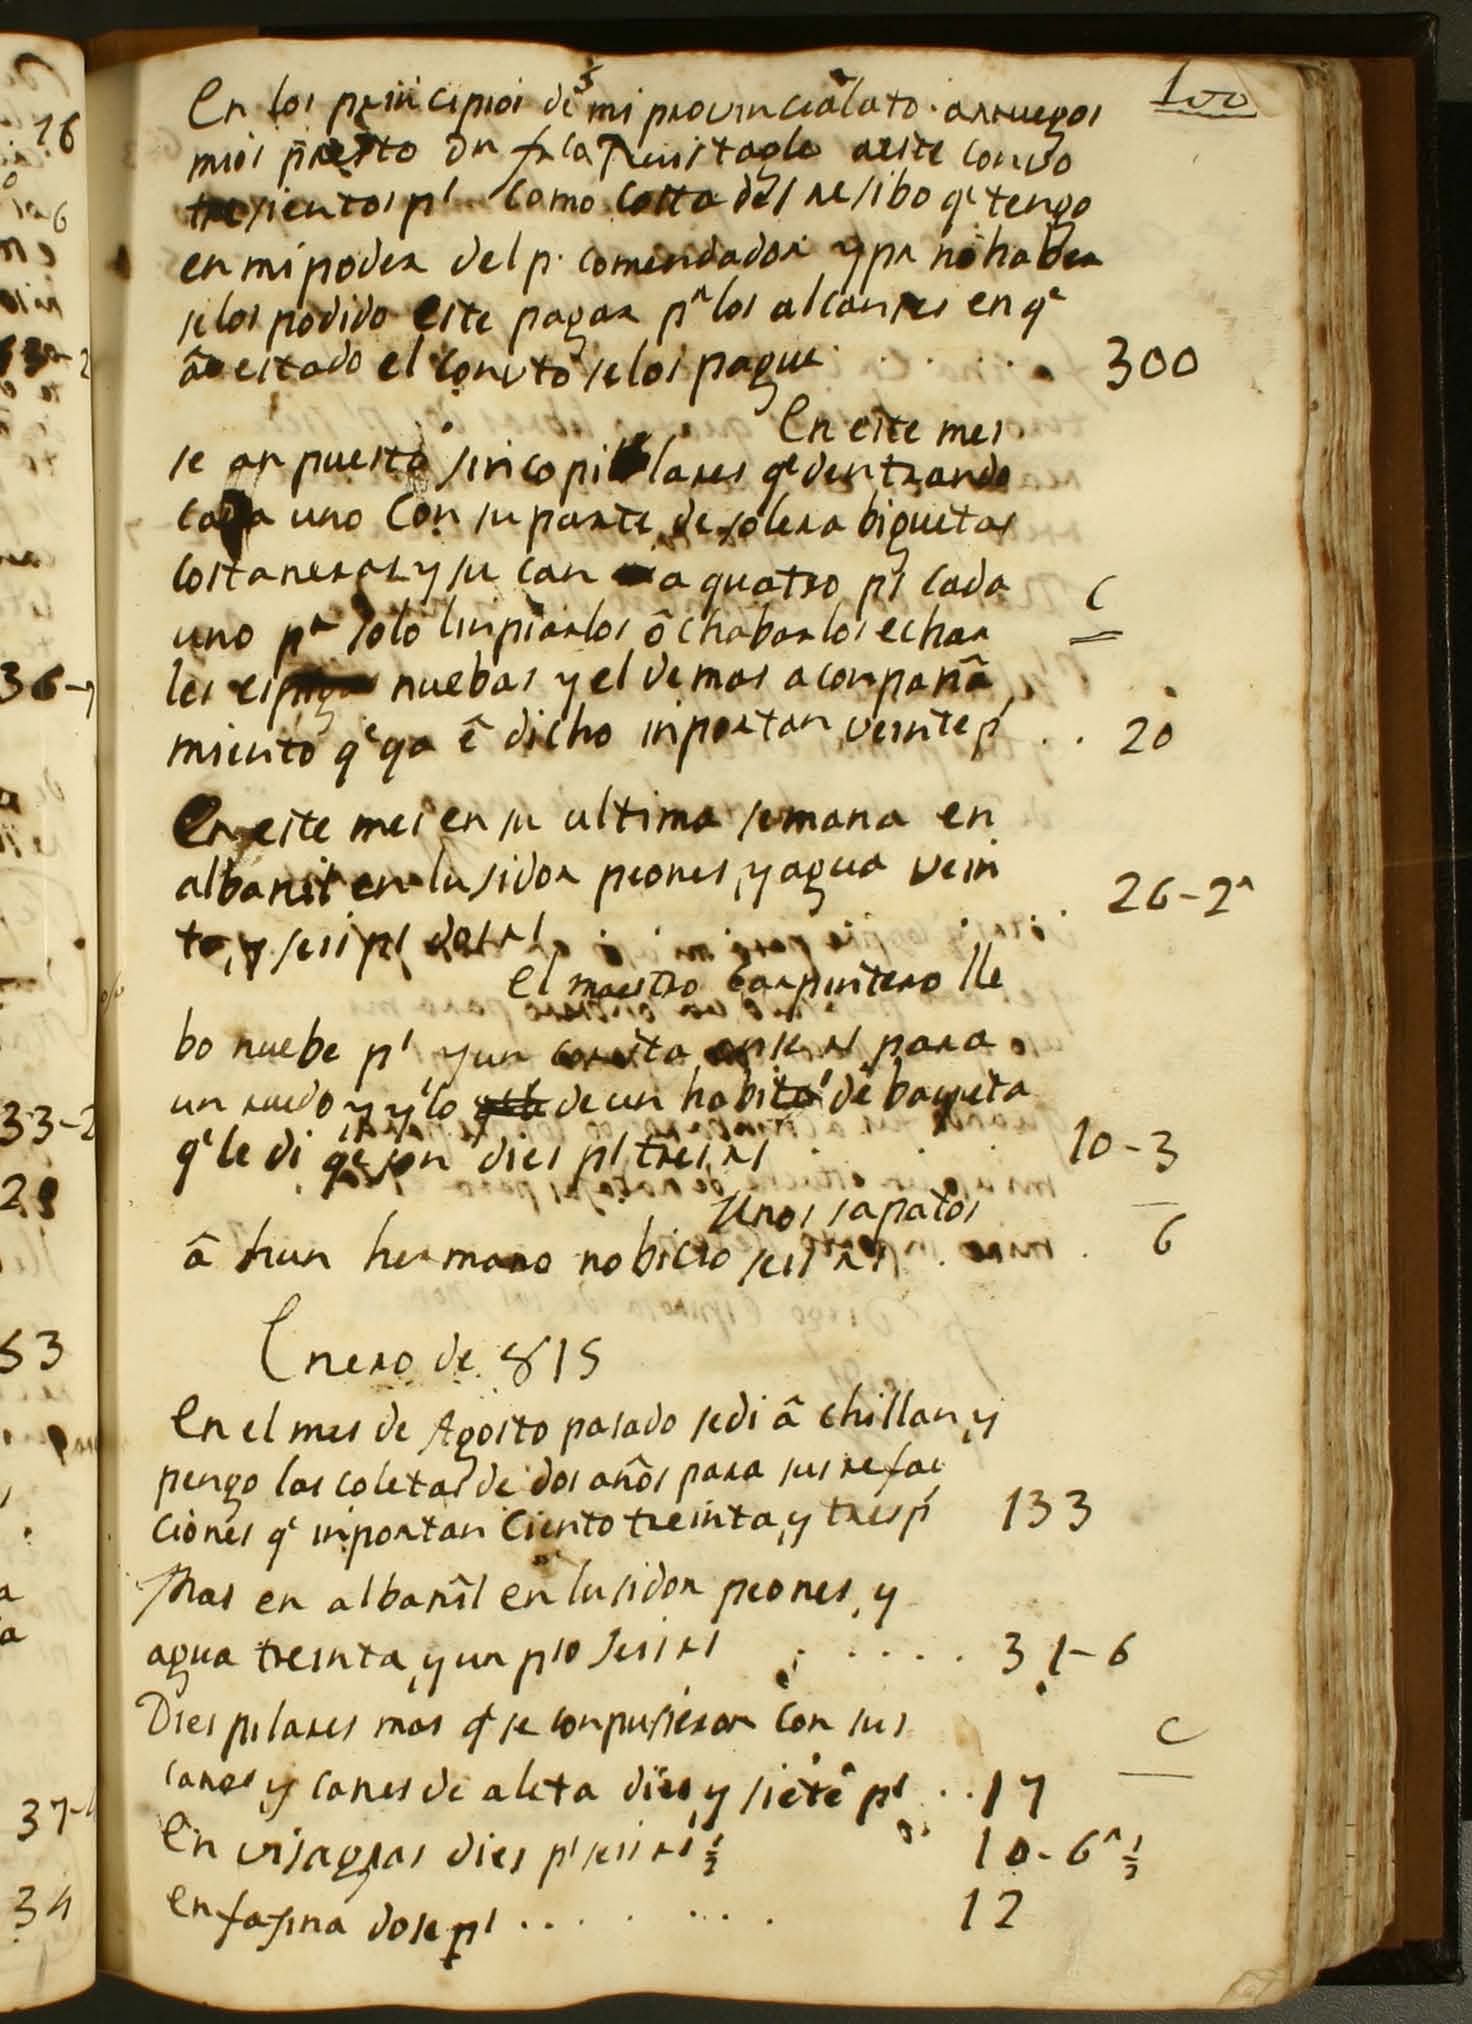 100
En los principios de mi provincialato arruegos
mios presto Dn frca Ruistagle a este convto
tresientos ps como costa del resibo qe tengo
en mi poder del p. comendador y pr no haber
selos podido este pagar pr los alcanses en qe
â estado el convto se los pague 300
En este mes
se an puesto sinco pilares qe dentrando
cada uno con su parte de solera biguetas
costaneras y su can a quatro ps cada
uno pr solo linpiarlos ô chabarlos echar C
les espigas nuebas y el demas aconpañâ
miento qe ya ê dicho inportan veinte ps 20
En este mes en su ultima semana en
albanil enlusidor peones, y agua vein
te, y seis ps dos rs 26-2r
El maestro Carpintero lle
bo nuebe ps y un para
un ruedo y ylo de un habito de bayeta
qe le di qe son dies ps tres rs 10-3
Unos sapatos
â hun hermano nobicio seis rs 6
Enero de 815
En el mes de Agosto pasado se di â chillan, y
pengo las coletas de dos años para sus refac
ciones qe inportan Ciento treinta, y tres ps 133
Mas en albañil enlusidor peones, y
agua treinta, y un pso seis rs 31-6
Dies pilares mas qe se conpusieron con sus C
canes y canes de aleta dies, y siete ps 17
En visagras dies ps seis rs ½ 10-6r ½
en fasina dose ps 12
16
6
36-
33-2
28
53
37-
34